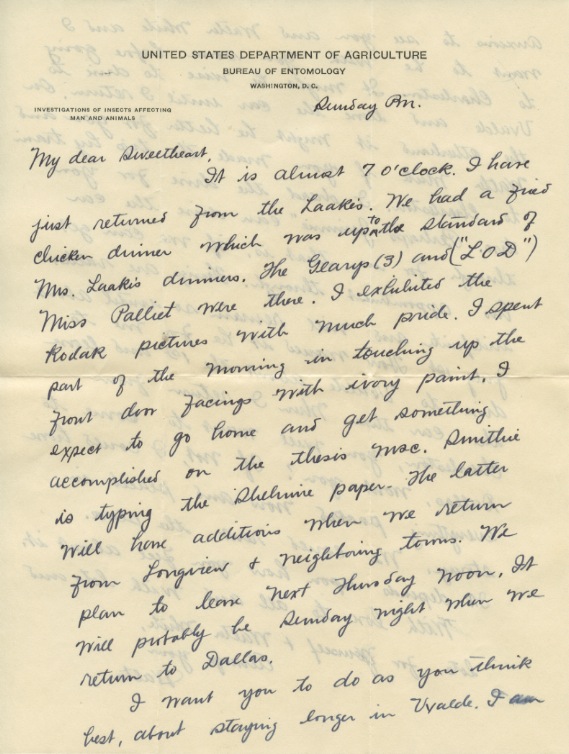 UNITED STATES DEPARTMENT OF AGRICULTURE
BUREAU OF ENTOMOLOGY
WASHINGTON, D. C.
INVESTIGATIONS OF INSECTS AFFECTING
MAN AND ANIMALS
Sunday Pm.
My dear Sweetheart,
It is almost 7 o'clock. I have
just returned from the Laakes. We had a fried
chicken dinner which was up to the standard of
Mrs. Laakes dinners. The Gearys (3) and ("L.O.D")
Miss Palliet were there. I exhibited the
Kodak pictures with much pride. I spent
part of the morning in touching up the
front door facings with ivory paint. I
expect to go home and get something
accomplished on the thesis msc. Smithie
is typing the paper. The latter
will have additions when we return
from Longview & neighboring towns. We
plan to leave next Thursday noon. It
will probably be Sunday night when we
return to Dallas.
I want you to do as you think
best, about staying longer in Uvalde. I am